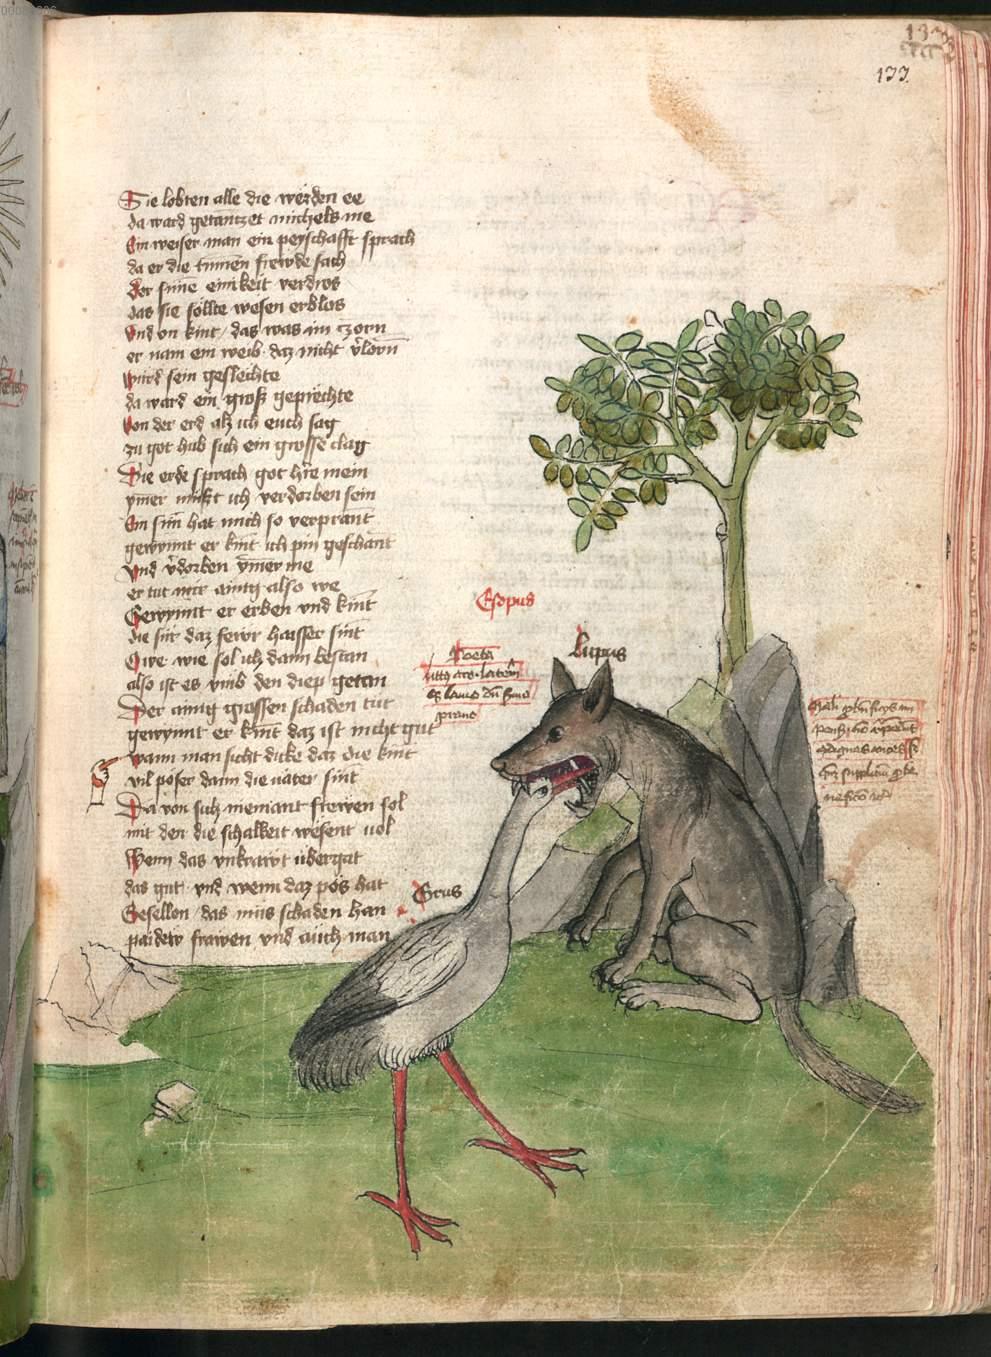 133
Sie lobten alle die werden ee
da ward getanczet michels me
Ein weiser man ein peyschafft sprach
da er die tummen frewde sach
Der sune einikeit verdros
das sie sollte wesen erblos
Vnd on kint / das was im zorn
er nam ein weib daz nicht v̓lorn
wurd sein geslechte
da ward ein groß geprechte
Von der erd alz ich euch sag
zu got hub sich ein grosse clag
Die erde sprach got h're mein
ymer muß ich verdorben sein
Ein sun hat mich so verprant
gewynnt er kint ich pin geschant
Vnd v̓dorben ymer me
er tut mir ainig also we
Gewynnt er erben vnd kint
die sur daz fewr haisser sint
Owe wie sol ich dann bestan
also ist es vmb den diep getan
Der ainig grossen schaden tut
gewynnt er kint daz ist nicht gut
wann man sicht dicke daz die kint
vil poser dann die vater sint
Da von sich niemant frewen sol
mit den die schalkeit wesent vol
Wenn das vnkrawt übergat
das gut vnd wenn daz pös hat
Gesellen / das mus schaden han
paidew frawen vnd auch man
Esopus
Poeta
Lupus
Grus